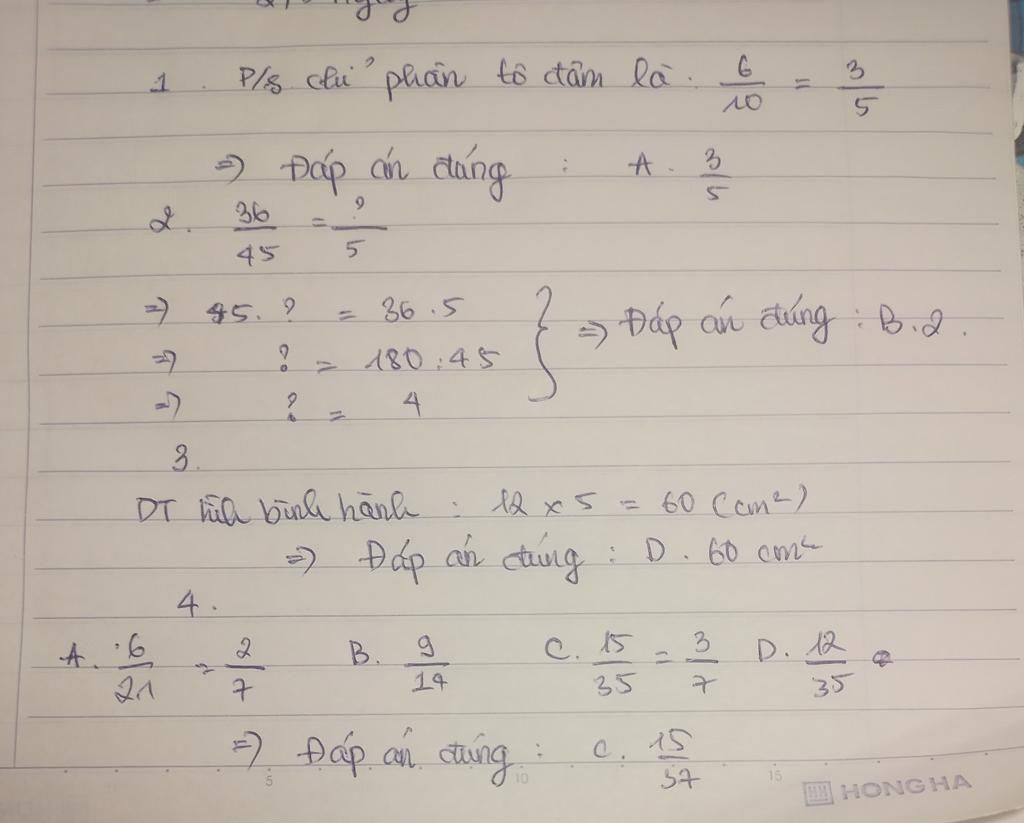 ngày
1. P/s chỉ phần tô đậm là. 6/10 = 3/5
=> Đáp án đúng : A. 3/5
2. 36/45 = ?/5
=> 45. ? = 36.5
=> ? = 180:45
=> ? = 4
} => Đáp án đúng : B.2.
3.
DT hình bình hành : 12 x 5 = 60 (cm²)
=> Đáp án đúng : D. 60 cm²
4.
A. 6/21 = 2/7 B. 9/14 C. 15/35 = 3/7 D. 12/35
=> Đáp án đúng : C. 15/37
5 10 15
HONG HA